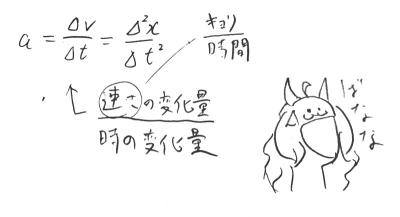 a = Δv/Δt = Δ²x/Δt²
キョリ/時間
連さの変化量/時の変化量
ばななな